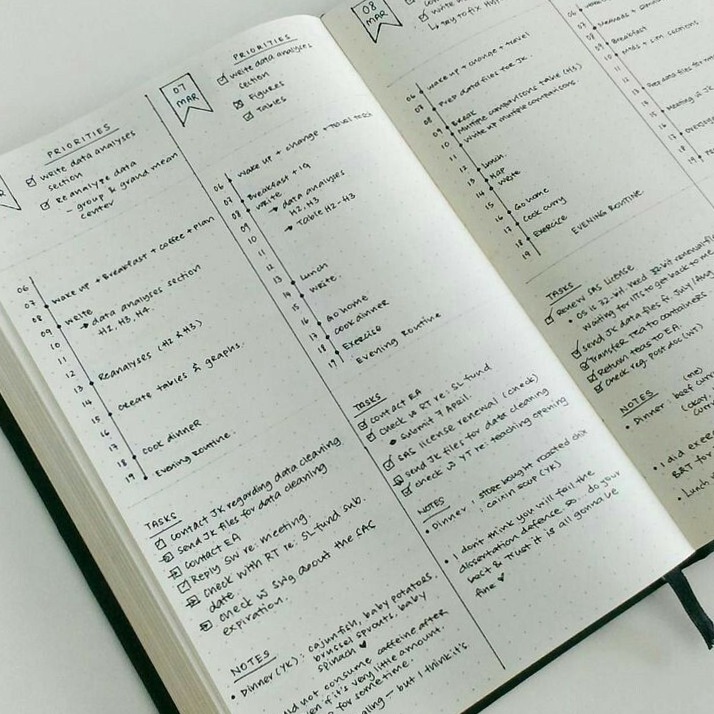 PRIORITIES
write data analyses
section
reanalyse data
- group & grand mean
center
06
07
08
09
10
11
12
13
14
15
16
17
18
19
wake up + Breakfast + coffee + plan
write
→ data analyses section
H2, H3, H4.
Reanalyses (H2 & H3)
create tables & graphs.
cook dinner
Evening Routine.
TASKS
contact JK regarding data cleaning
send JK files for data cleaning
contact EA
Reply SW re: meeting.
check with RT re: SL fund sub.
date.
check w about the SAS
expiration.
NOTES
• Dinner (YK): cajun fish, baby potatoes.
brussel sprouts, baby
spinach ♥
not consume caffeine after
if it's very little amount.
for sometime.
- but I think it's
07
MAR
PRIORITIES
write data analyses
section
Figures
Tables
06
07
08
09
10
11
12
13
14
15
16
17
18
19
wake up + change + travel
Breakfast +
write
→ data analyses
H2, H3
→ Table H2-H3
Lunch
write.
Go home
cook dinner
Exercise
Evening Routine
TASKS
contact EA
check w RT re: SL fund
• submit 7 April.
SAS license renewal (check)
send JK files for data cleaning
check w YT re: teaching opening
NOTES
• Dinner: store bought roasted
cajun soup (YK)
• I don't think you will fail the
dissertation defence so... do your
best & Trust it is all gonna be
fine ♥
08
MAR
06
07
08
09
10
11
12
13
14
15
16
17
18
19
wake up + change + travel
Prep data files for JK
Break
Multiple comparisons table (H3)
write up multiple comparisons
Lunch
Nap
write
Go home
Cook curry
Exercise
EVENING ROUTINE
TASKS
Renew SAS license
• OS is 32-bit. Need 32-bit
waiting for ITS to get back to me
send JK data files
Transfer tea to containers
Return texts to EA.
check reg. Postdoc
NOTES
• Dinner: (me)
beef
(okay,
• I did
for
• Lunch
Breakfast